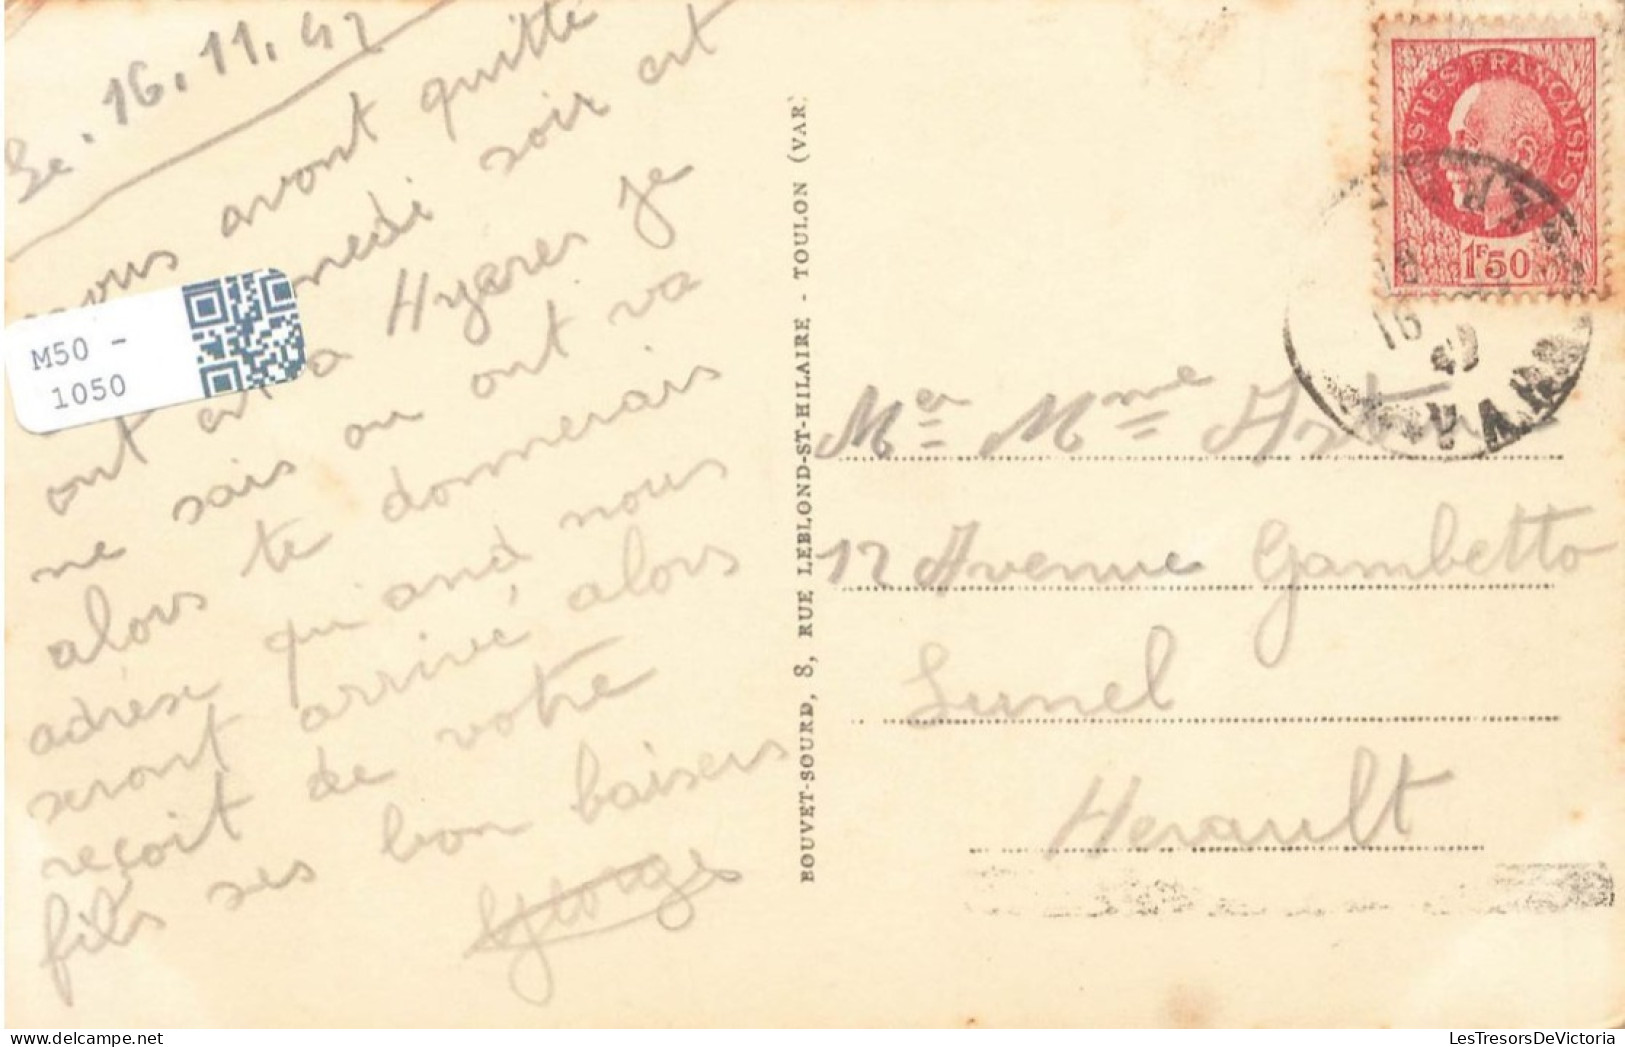 Le. 16.11.42
nous avont quitté
medi soir est
ont est a Hyeres je
ne sais ou ont va
alors te donnerais
adrése quand nous
seront arrivé alors
reçoit de votre
fils ses bon baisers
Georges
M50 -
1050
BOUVET-SOURD, 8, RUE LEBLOND-ST-HILAIRE - TOULON (VAR)
POSTES FRANÇAISES
1F50
16
VAR
Mer Mme
12 Avenue Gambetta
Lunel
Herault
LesTresorsDeVictoria